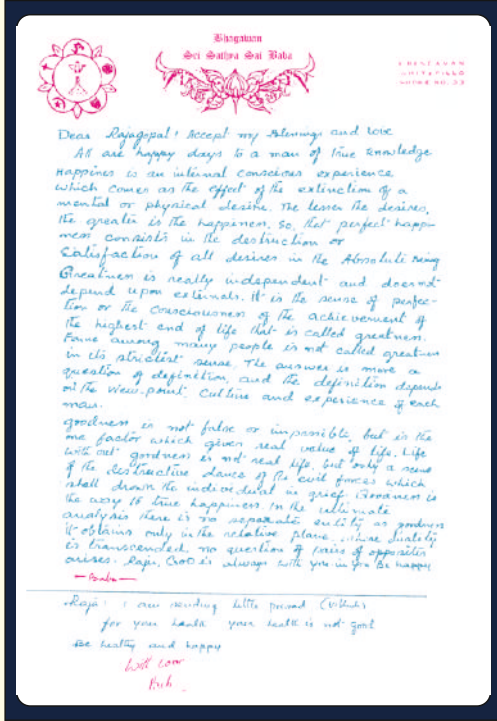 Bhagawan
Sri Sathya Sai Baba
BRINDAVAN
WHITEFIELD
PHONE NO. 33
Dear Rajagopal! Accept my Blessings and love
All are happy days to a man of True Knowledge
Happiness is an internal conscious experience
which comes as the effect of the extinction of a
mental or physical desire. The lesser the desires,
the greater is the happiness. So, that perfect happi-
ness consists in the destruction or
Satisfaction of all desires in the Absolute Being
Greatness is really independent and does not
depend upon externals. It is the sense of perfec-
tion or the consciousness of the achievement of
the highest end of life that is called greatness.
Fame among many people is not called greatness
in its strictest sense. The answer is more a
question of definition, and the definition depends
on the view-point, culture and experience of each
man.
goodness is not false or impossible, but is the
one factor which gives real value of life. Life
with out goodness is not real life, but only a scene
of the destructive dance of the evil forces which
shall drown the individual in grief. Goodness is
the way to true happiness. In the ultimate
analysis there is no separate entity as goodness
it obtains only in the relative plane, where duality
is transcended, no question of pairs of opposites
arises. Raju, God is always with you in you Be happy
—Baba—
Raja! I am sending little (Vibhuti)
for your health your health is not good
Be healthy and happy
With Love
Baba